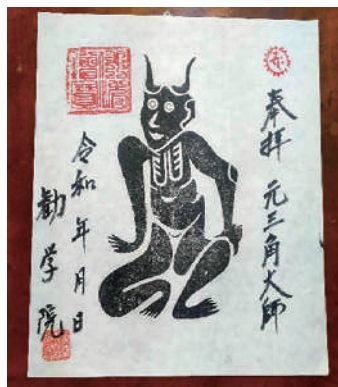 奉拝 元三角大師
令和 年 月 日
勧学院